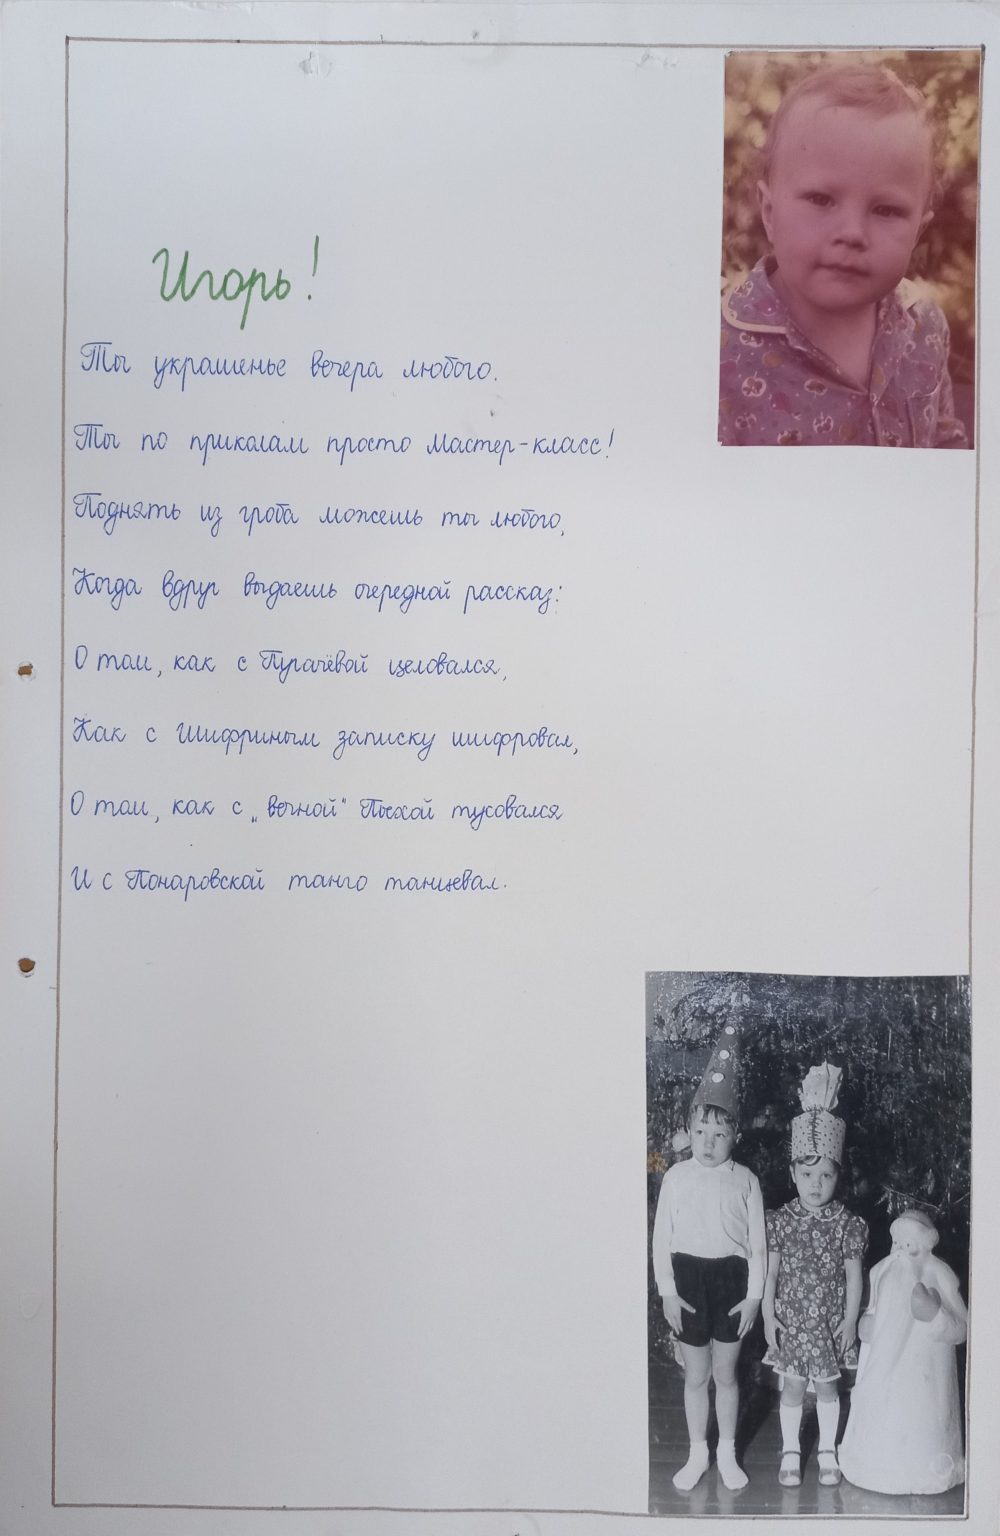 Игорь!
Ты украшенье вечера любого.
Ты по приколам просто мастер-класс!
Поднять из гроба можешь ты любого,
Когда вдруг выдаешь очередной рассказ:
О том, как с Пугачёвой целовался,
Как с Шифриным записку шифровал,
О том, как с „вечной" Пьехой тусовался
И с Понаровской танго танцевал.